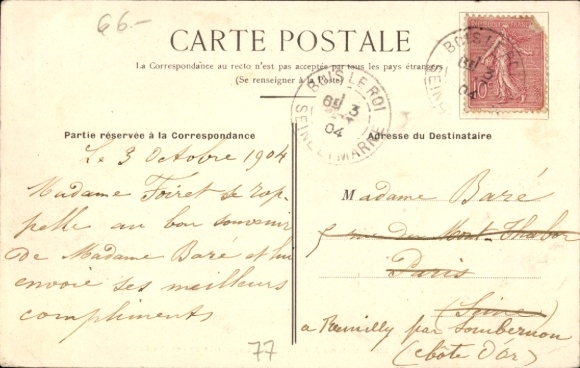 66.-
CARTE POSTALE
La Correspondance au recto n'est pas acceptée par tous les pays étrangers
(Se renseigner à la Poste)
BOIS LE ROI
3
04
SEINE ET MARNE
BOIS LE
3
04
SEINE
10
Partie réservée à la Correspondance
Le 3 Octobre 1904
Madame Foiret se rap-
pelle au bon souvenir
de Madame Baré et lui
envoie ses meilleurs
compliments
77
Adresse du Destinataire
Madame Baré
5 rue du Mont-Thabor
Paris
(Seine)
a Remilly par Sombernon
(côte d'or)